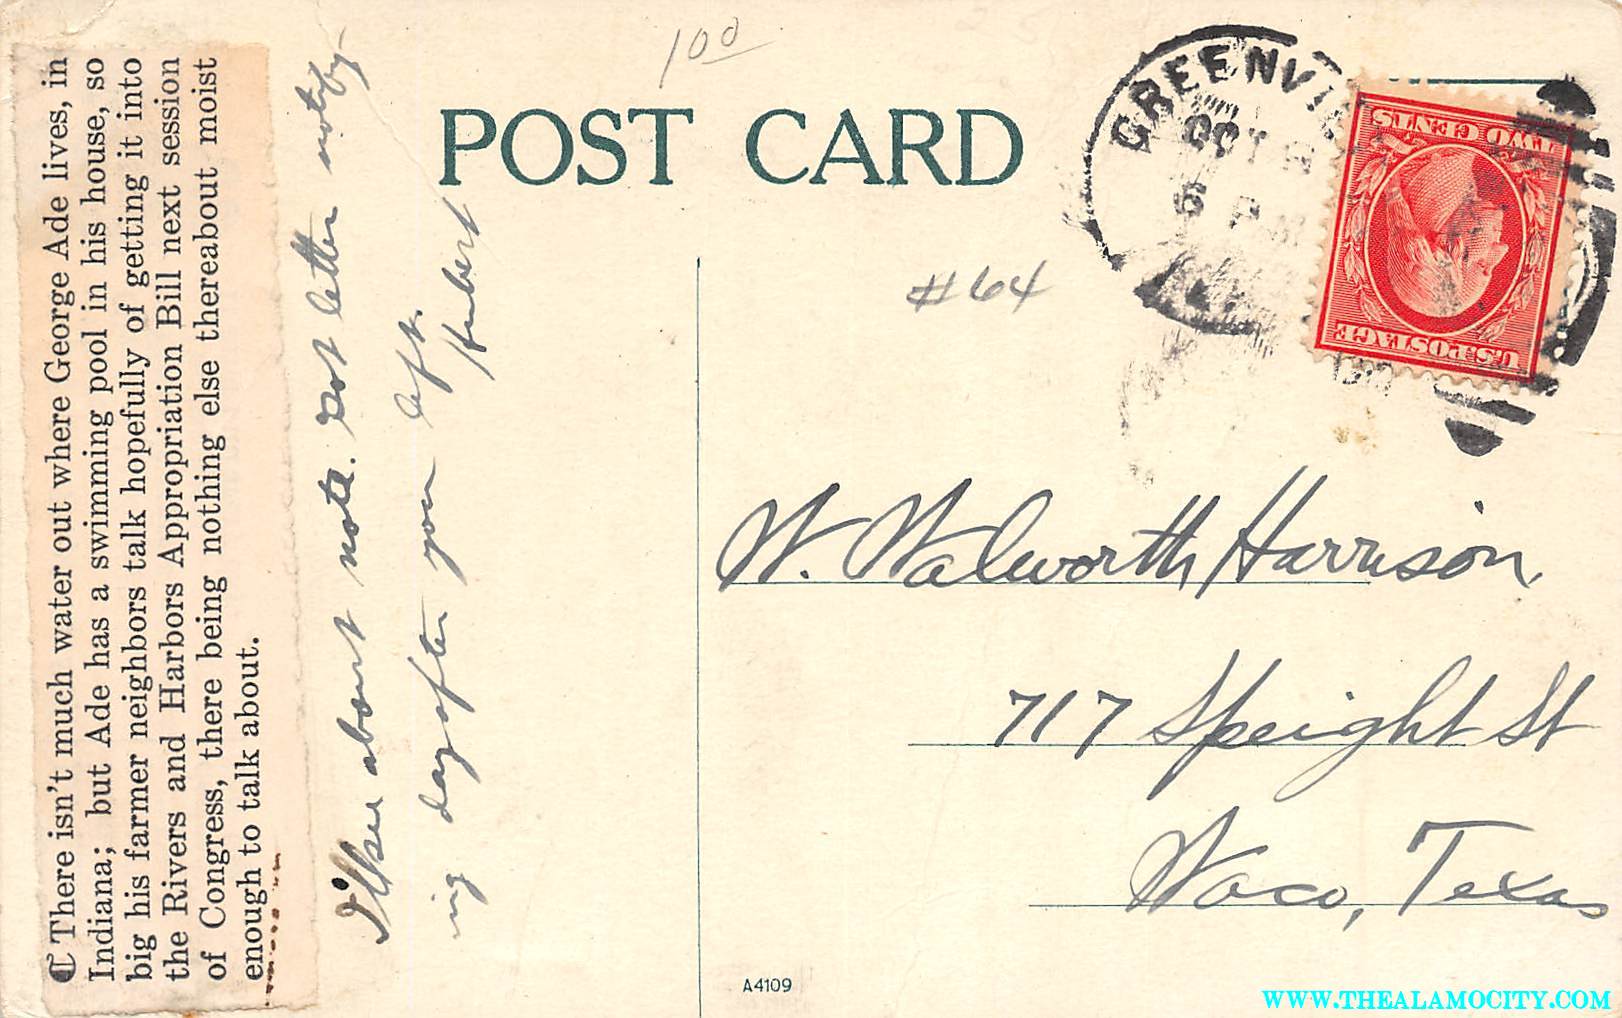 ☾ There isn't much water out where George Ade lives, in
Indiana; but Ade has a swimming pool in his house, so
big his farmer neighbors talk hopefully of getting it into
the Rivers and Harbors Appropriation Bill next session
of Congress, there being nothing else thereabout moist
enough to talk about.
I'll see about note. Got letter notify-
ing day after you left.
Hubert
100
POST CARD
#64
GREENVI
OCT
6 PM
TWO CENTS
U.S. POSTAGE
W. Walworth Harrison,
717 Speight St
Waco, Texas
A4109
WWW.THEALAMOCITY.COM